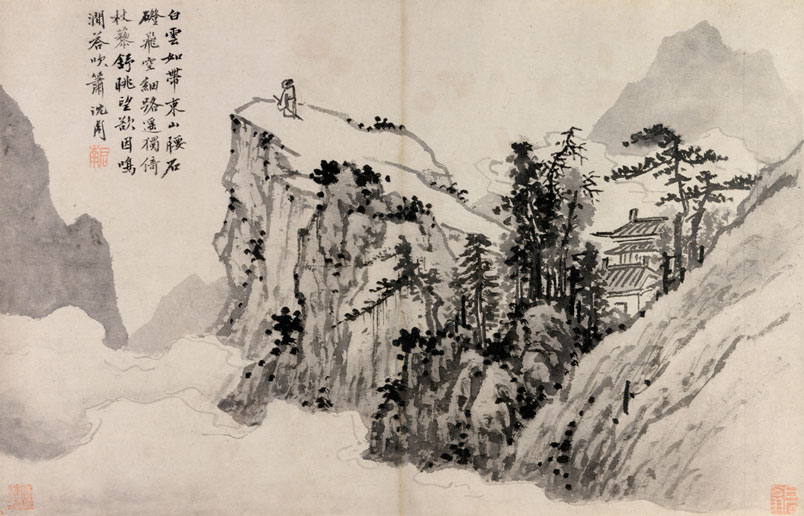 白雲如帶束山腰石
磴飛空細路遙獨倚
杖藜舒眺望欲因鳴
澗荅吹簫 沈周